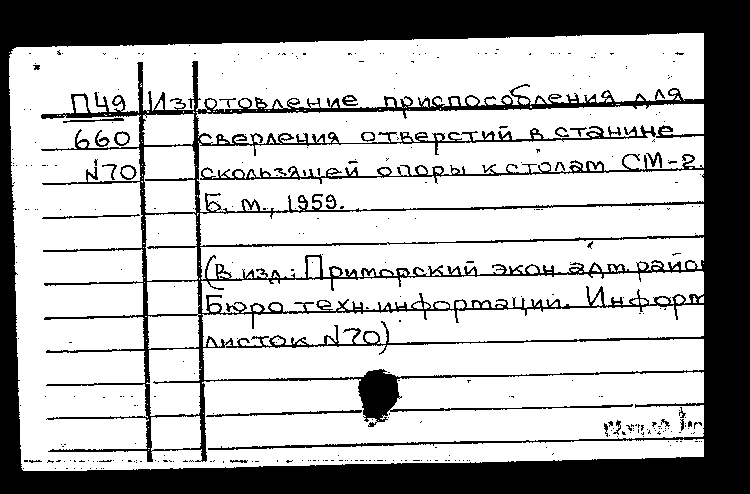 П49 Изготовление приспособления для
660 сверления отверстий в станине
N70 скользящей опоры к столам СМ-2.
Б. м., 1959.
(В изд.: Приморский экон. адм. район
Бюро техн. информации. Информ
листок N70)